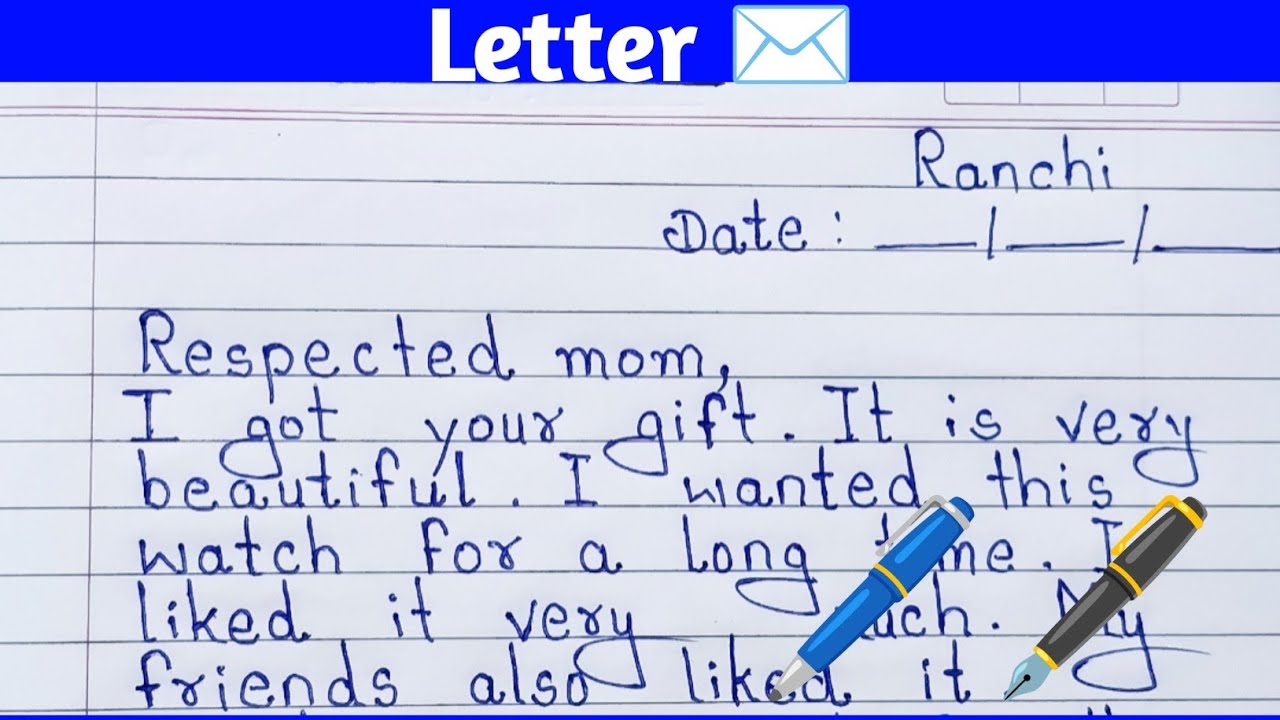 Letter
Ranchi
Date : __/__/__
Respected mom,
I got your gift. It is very
beautiful. I wanted this
watch for a long time. I
liked it very much. My
friends also liked it